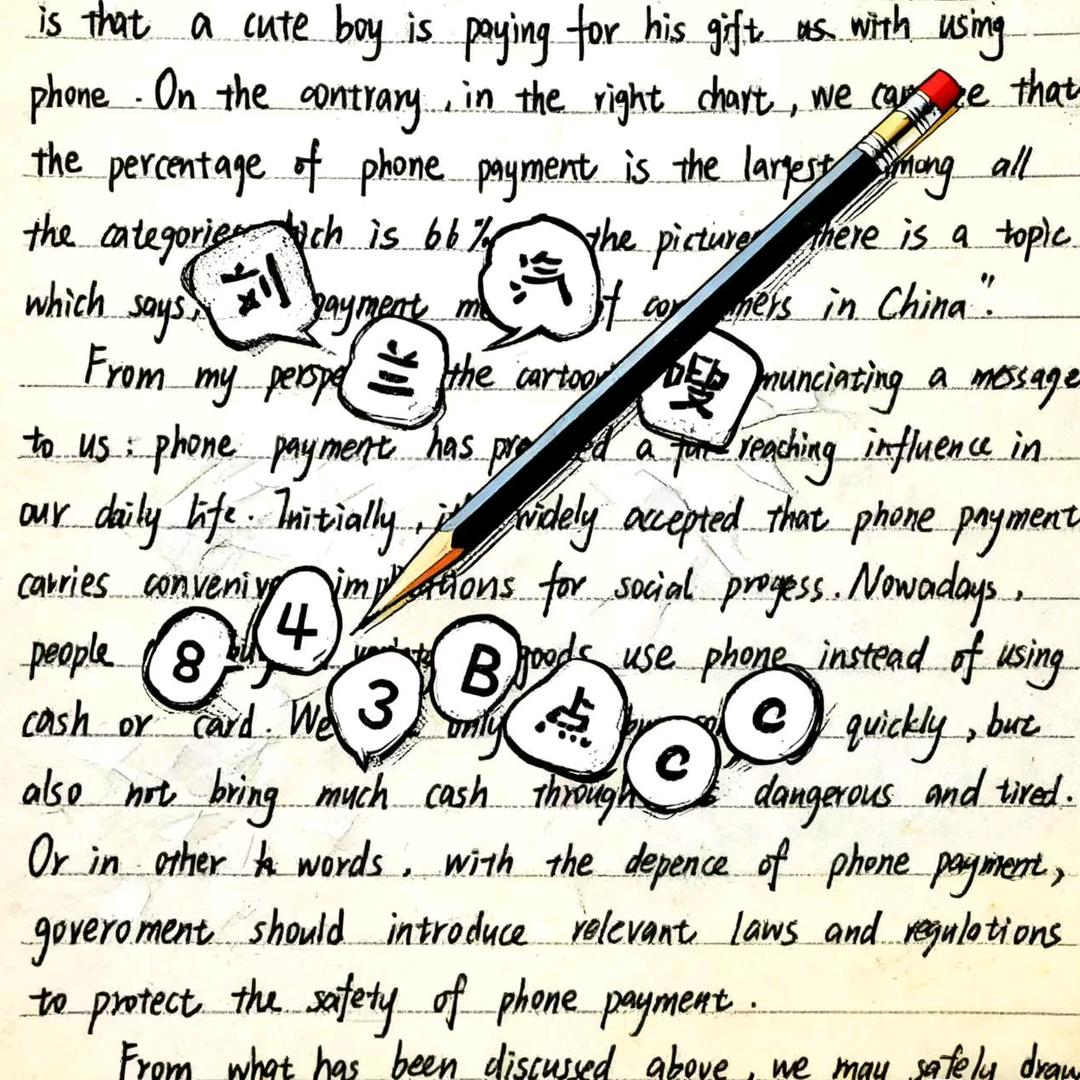 is that a cute boy is paying for his gift us with using
phone. On the contrary, in the right chart, we can see that
the percentage of phone payment is the largest among all
the categories which is 66% the picture there is a topic
which says, payment of in China".
From my the cartoon a message
to us: phone payment has a far reaching influence in
our daily life. Initially, widely accepted that phone payment
carries for social progess. Nowadays,
people goods use phone instead of using
cash or card. We only quickly, but
also not bring much cash through dangerous and tired.
Or in other words, with the depence of phone payment,
goveroment should introduce relevant laws and regulations
to protect the safety of phone payment.
From what has been discussed above, we may safely draw
刘 兰 汽 嗖
8 4 3 B 点 C C